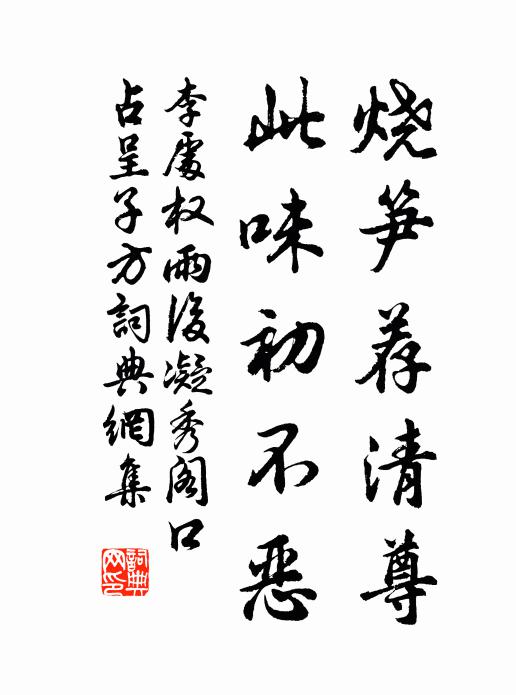 烧笋荐清尊
此味初不恶
李處权雨後凝秀阁口
占呈子方詞典網集
詞典网印